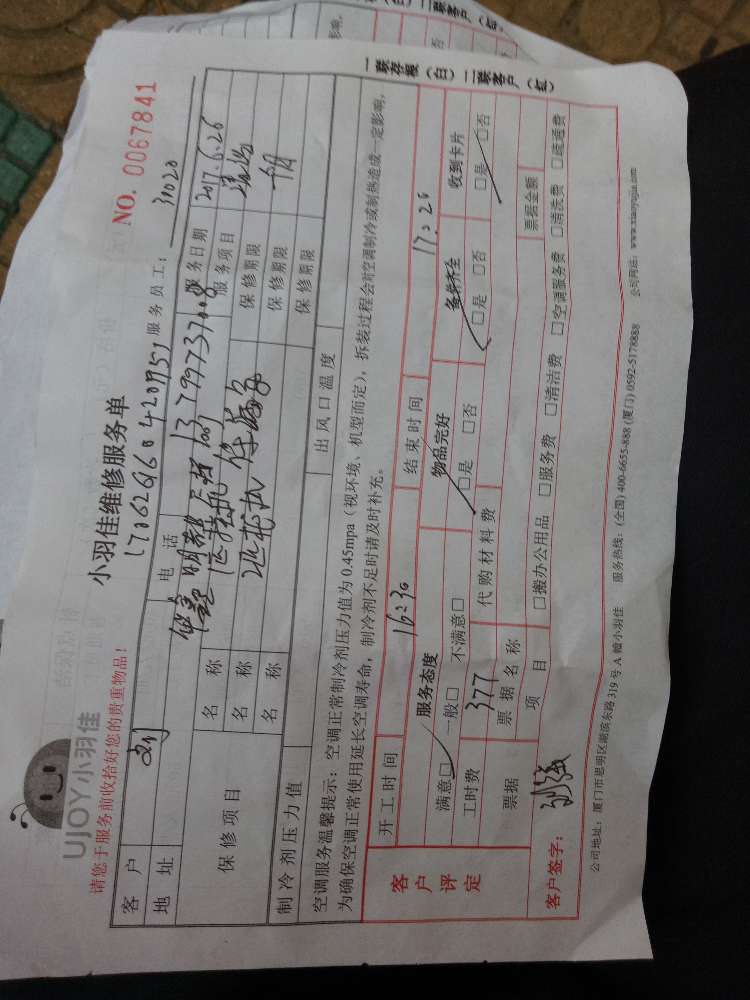 一联存根（白）二联客户（红）
UJOY小羽佳
小羽佳维修服务单
NO. 0067841
请您于服务前收拾好您的贵重物品！
服务员工： 31020
客户 刘 电话 服务日期 2017.6.26
地址 服务项目
保修项目 名称 保修期限
名称 保修期限
名称 保修期限
制冷剂压力值 出风口温度
空调服务温馨提示：空调正常制冷剂压力值为0.45mpa（视环境、机型而定），拆装过程会对空调制冷或制热造成一定影响，
为确保空调正常使用延长空调寿命，制冷剂不足时请及时补充。
客户评定
开工时间 16:30 结束时间 17:20
服务态度 物品完好 备养齐全 收到卡片
满意□ 一般□ 不满意□ □是 □否 □是 □否 □是 □否
工时费 377 代购材料费
票据 票据名称 票据金额
项目 □搬办公用品 □服务费 □清洁费 □空调服务费 □清洗费 □疏通费
客户签字： 刘强
公司地址：厦门市思明区湖滨东路319号A幢小羽佳 服务热线：(全国) 400-6655-888 (厦门) 0592-5178888 公司网址：www.xiaoyujia.com